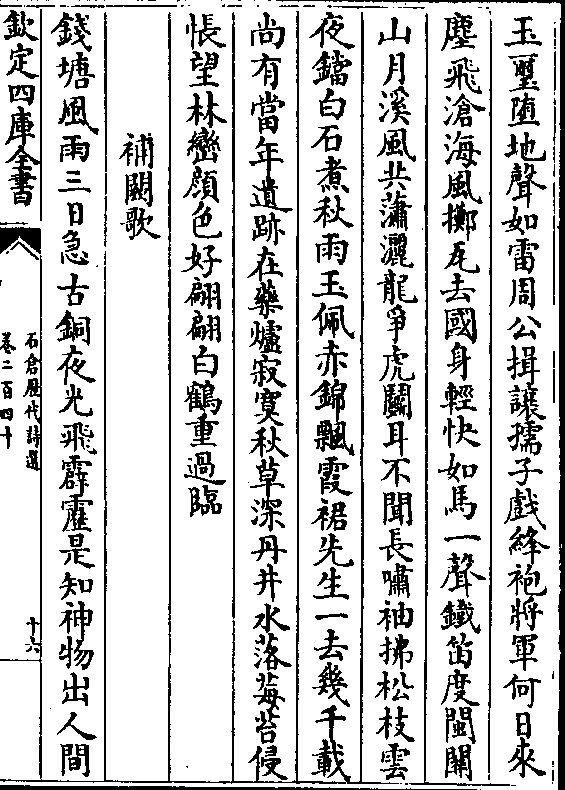 玉璽墮地聲如雷周公揖讓孺子戲絳袍將軍何日來
塵飛滄海風擲瓦去國身輕快如馬一聲鐵笛度閩關
山月溪風共蕭灑龍爭虎鬬耳不聞長嘯袖拂松枝雲
夜鐺白石煮秋雨玉佩赤錦飄霞裾先生一去幾千載
尚有當年遺跡在藥爐寂寞秋草深丹井水落莓苔侵
悵望林巒顔色好翩翩白鶴重過臨
補闕歌
錢塘風雨三日急古銅夜光飛霹靂是知神物出人間
欽定四庫全書
石倉歷代詩選
卷二百四十
十六